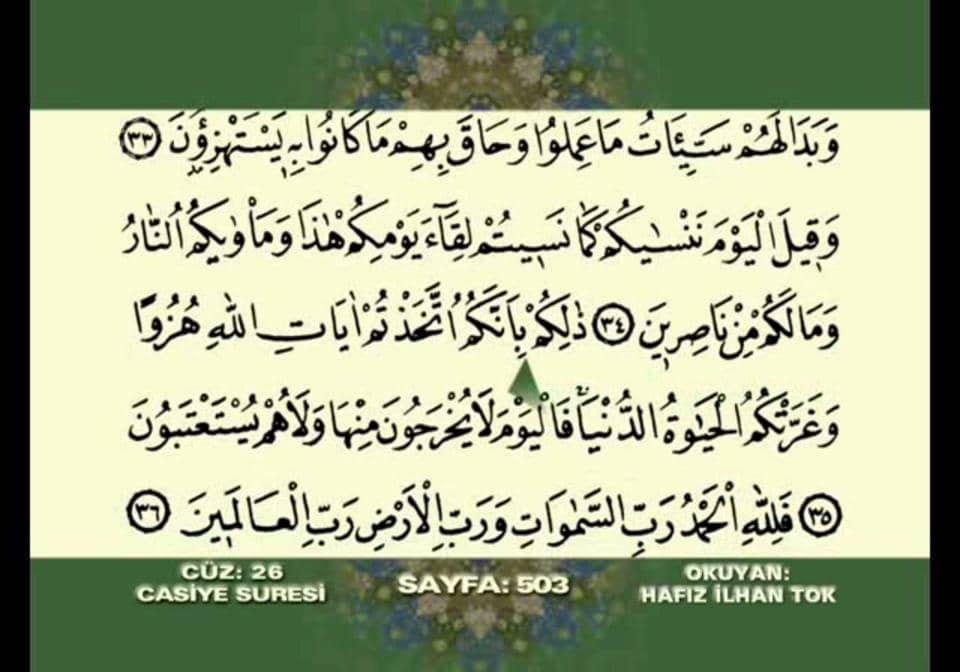 وَبَدَا لَهُمْ سَيِّئَاتُ مَا عَمِلُوا وَحَاقَ بِهِمْ مَا كَانُوا بِهٖ يَسْتَهْزِؤُ۫نَ ﴿٣٣﴾
وَقٖيلَ الْيَوْمَ نَنْسٰيكُمْ كَمَا نَسٖيتُمْ لِقَٓاءَ يَوْمِكُمْ هٰذَا وَمَاْوٰيكُمُ النَّارُ
وَمَا لَكُمْ مِنْ نَاصِرٖينَ ﴿٣٤﴾ ذٰلِكُمْ بِاَنَّكُمُ اتَّخَذْتُمْ اٰيَاتِ اللّٰهِ هُزُوًا
وَغَرَّتْكُمُ الْحَيٰوةُ الدُّنْيَاۚ فَالْيَوْمَ لَا يُخْرَجُونَ مِنْهَا وَلَا هُمْ يُسْتَعْتَبُونَ
﴿٣٥﴾ فَلِلّٰهِ الْحَمْدُ رَبِّ السَّمٰوَاتِ وَرَبِّ الْاَرْضِ رَبِّ الْعَالَمٖينَ ﴿٣٦﴾
CÜZ: 26
CASİYE SURESİ
SAYFA: 503
OKUYAN:
HAFIZ İLHAN TOK